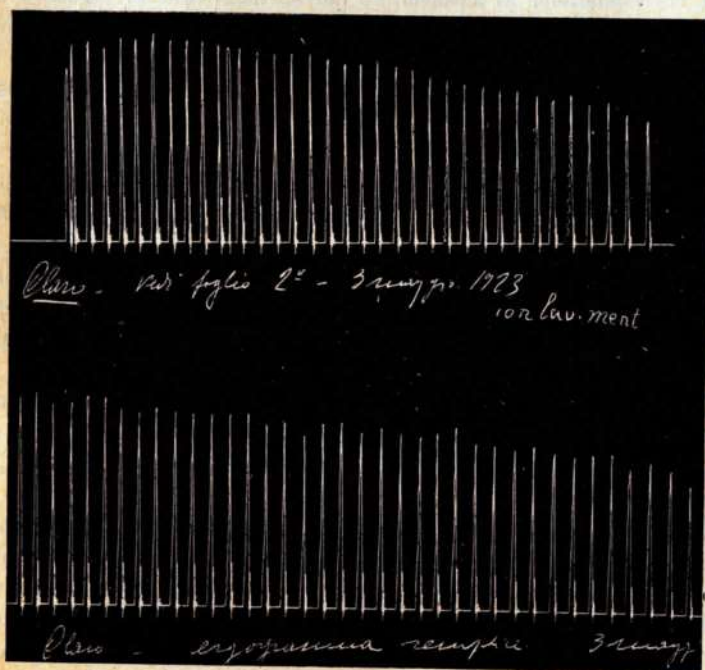 Olaro - Vedi foglio 2º - 3 maggio 1923
con lav. ment
Olaro - ergogramma semplice 3 magg